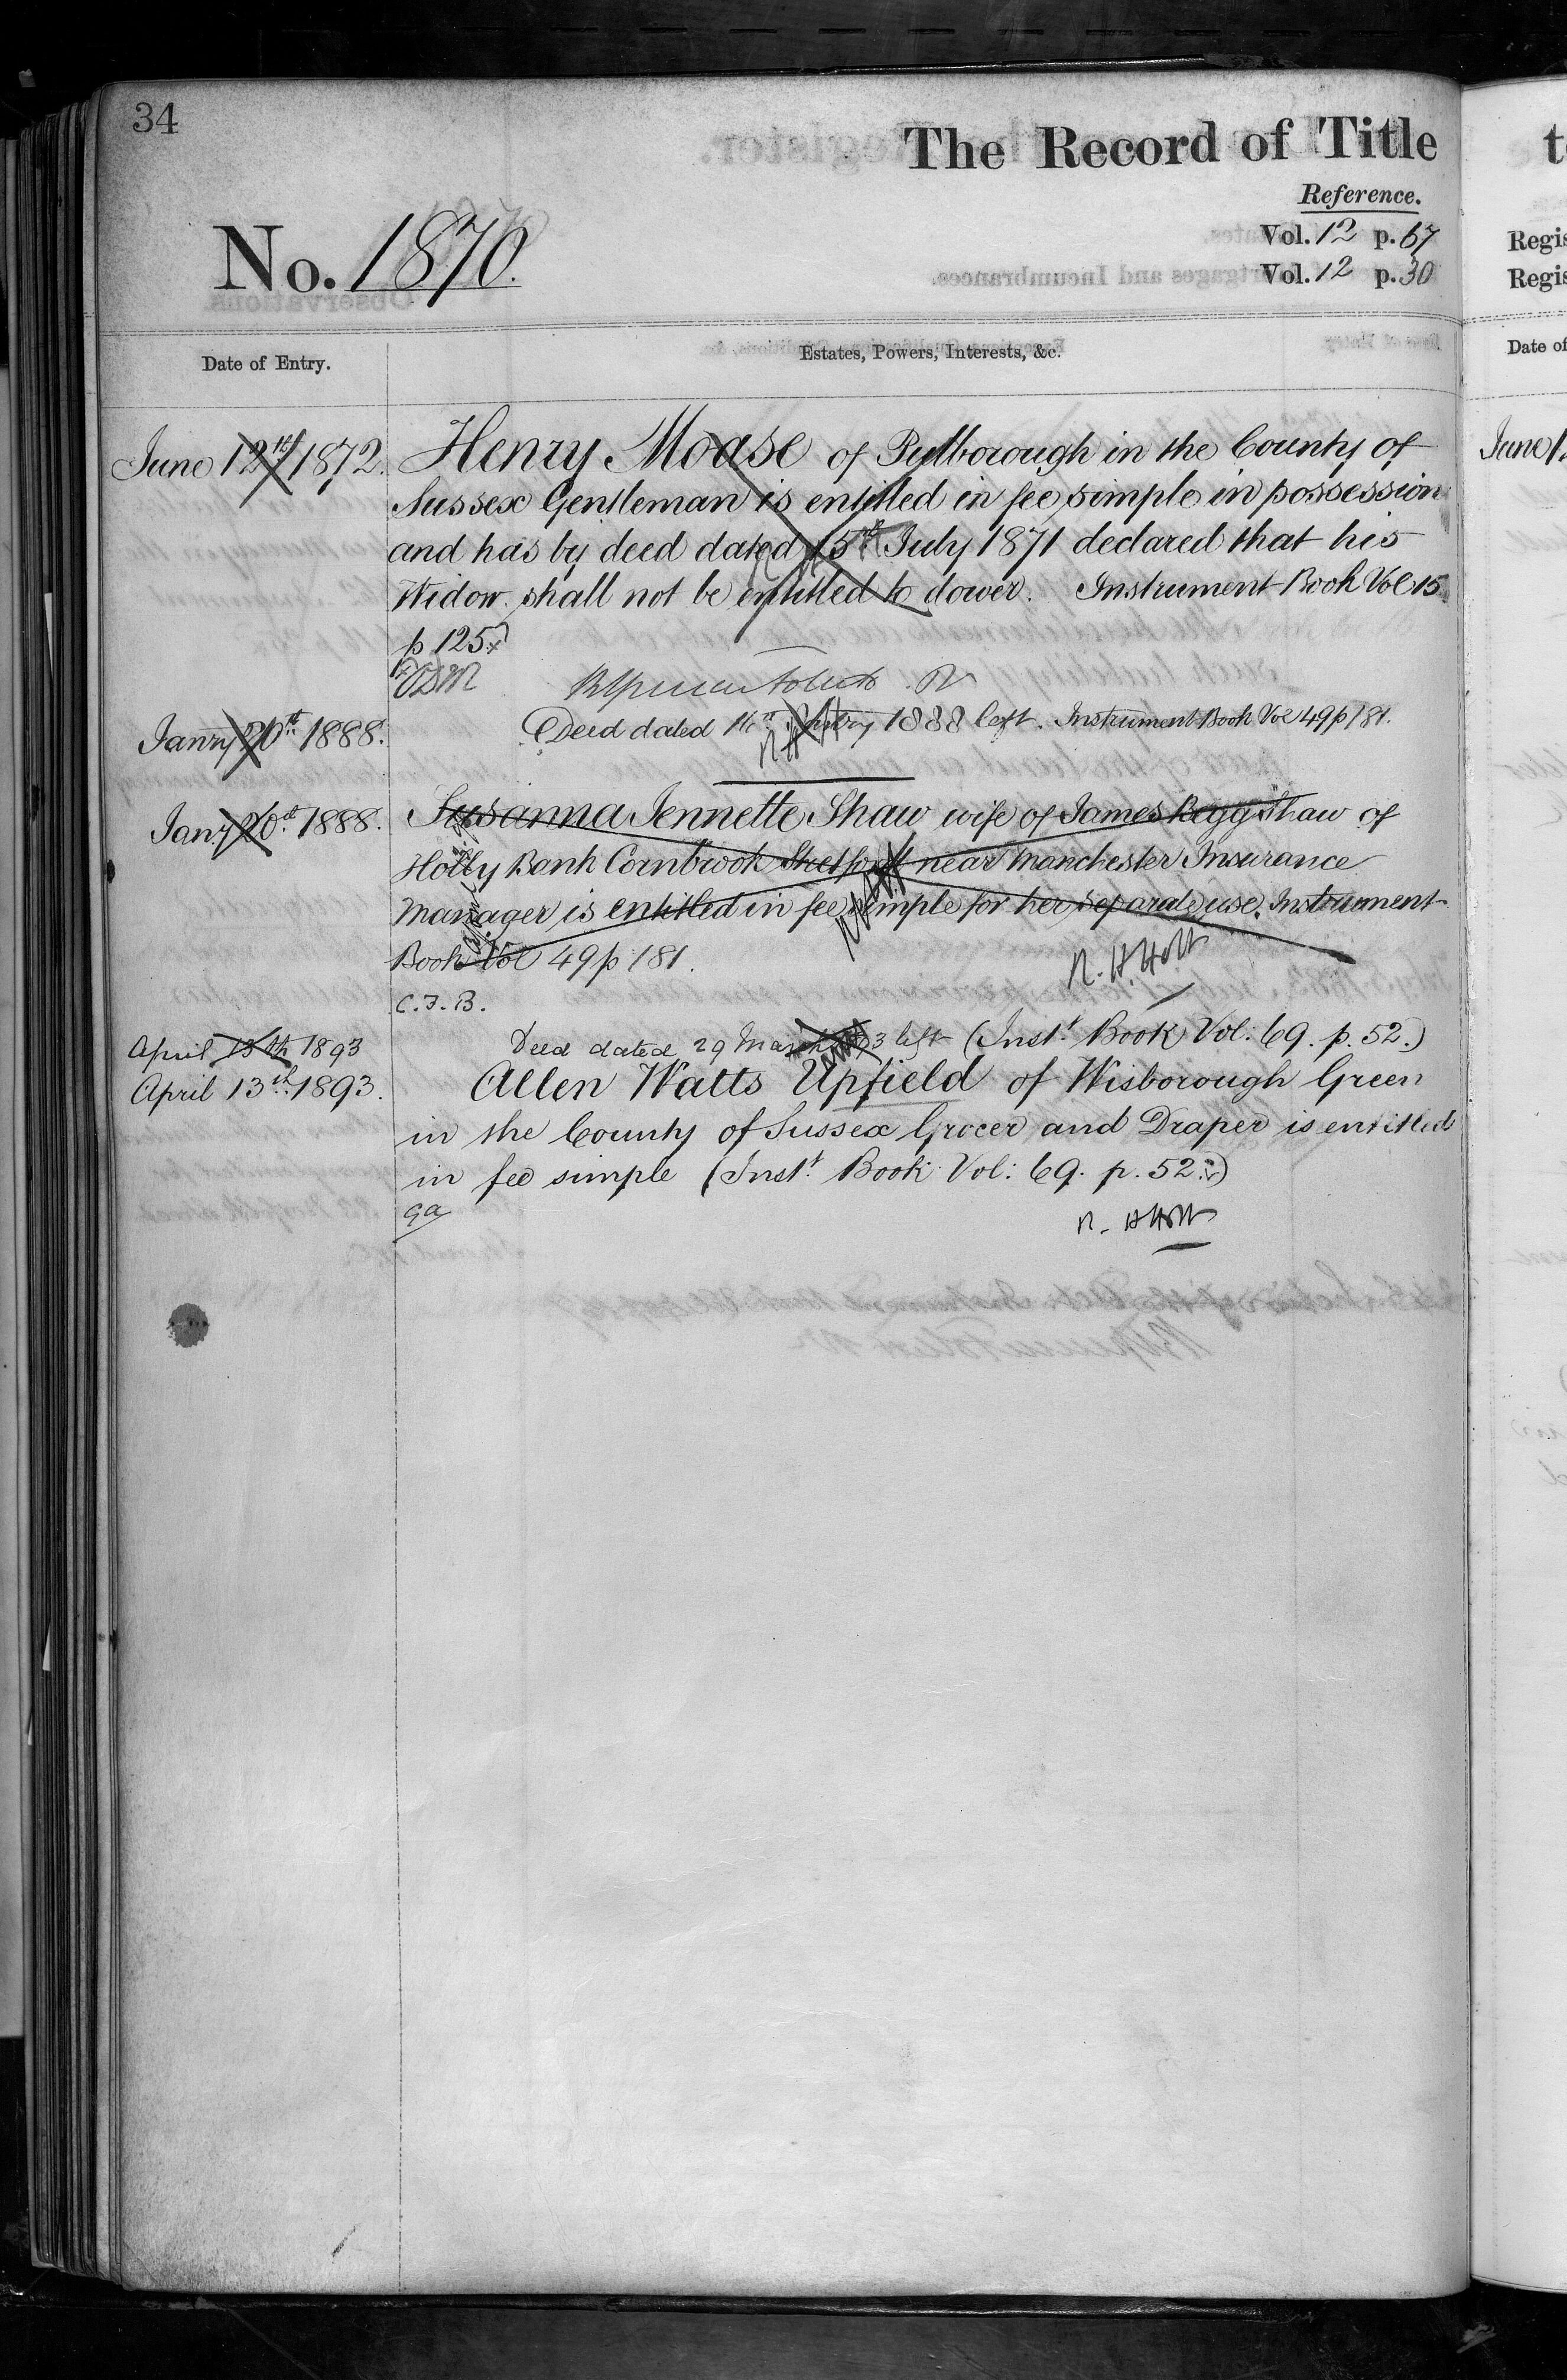 34
The Record of Title
Reference.
Vol. 12 p. 67
Vol. 12 p. 30
No. 1870.
Date of Entry.
Estates, Powers, Interests, &c.
June 12th 1872.
Henry Moase of Pulborough in the County of
Sussex Gentleman is entitled in fee simple in possession
and has by deed dated 15th July 1871 declared that his
Widow shall not be entitled to dower. Instrument Book Vol 15
p 125.
Janry 20th 1888.
Deed dated 16th Janry 1888 left. Instrument Book Vol 49 p 181.
Janry 20th 1888.
Susanna Jennette Shaw wife of James Begg Shaw of
Holly Bank Cornbrook Stretford near Manchester Insurance
Manager is entitled in fee simple for her separate use. Instrument
Book Vol 49 p 181.
R. H. Holt
C. J. B.
April 13th 1893
Deed dated 29 March 1893 left (Inst.t Book Vol: 69. p. 52.)
April 13th. 1893.
Allen Watts Upfield of Wisborough Green
in the County of Sussex Grocer and Draper is entitled
in fee simple (Inst.t Book Vol: 69. p. 52.)
R. H Holt
t
Regis
Regis
Date of
June 1